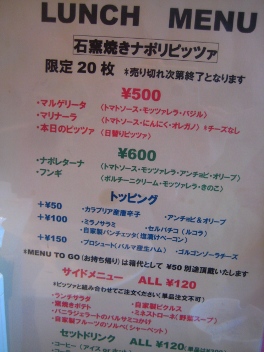 LUNCH MENU
石窯焼きナポリピッツァ
限定20枚 *売り切れ次第終了となります
¥500
・マルゲリータ 〈トマトソース・モッツァレラ・バジル〉
・マリナーラ 〈トマトソース・にんにく・オレガノ〉 *チーズなし
・本日のピッツァ 〈日替りピッツァ〉
¥600
・ナポレターナ 〈トマトソース・モッツァレラ・アンチョビ・オリーブ〉
・フンギ 〈ポルチーニクリーム・モッツァレラ・きのこ〉
トッピング
+¥50 ・カラブリア産唐辛子 ・アンチョビ&オリーブ
+¥100 ・ミラノサラミ ・セルバチコ(ルコラ)
・自家製パンチェッタ(塩漬けベーコン)
+¥150 ・プロシュート(パルマ産生ハム) ・ゴルゴンゾーラチーズ
*MENU TO GO(お持ち帰り)は箱代として ¥50 別途頂戴いたします
サイドメニュー ALL ¥120
*ピッツァと組み合わせてご注文ください(単品注文不可)
・ランチサラダ ・自家製ピクルス
・窯焼きポテト ・ミネストローネ(野菜スープ)
・バニラジェラートのバルサミコがけ
・自家製フルーツのソルベ(シャーベット)
セットドリンク ALL ¥120